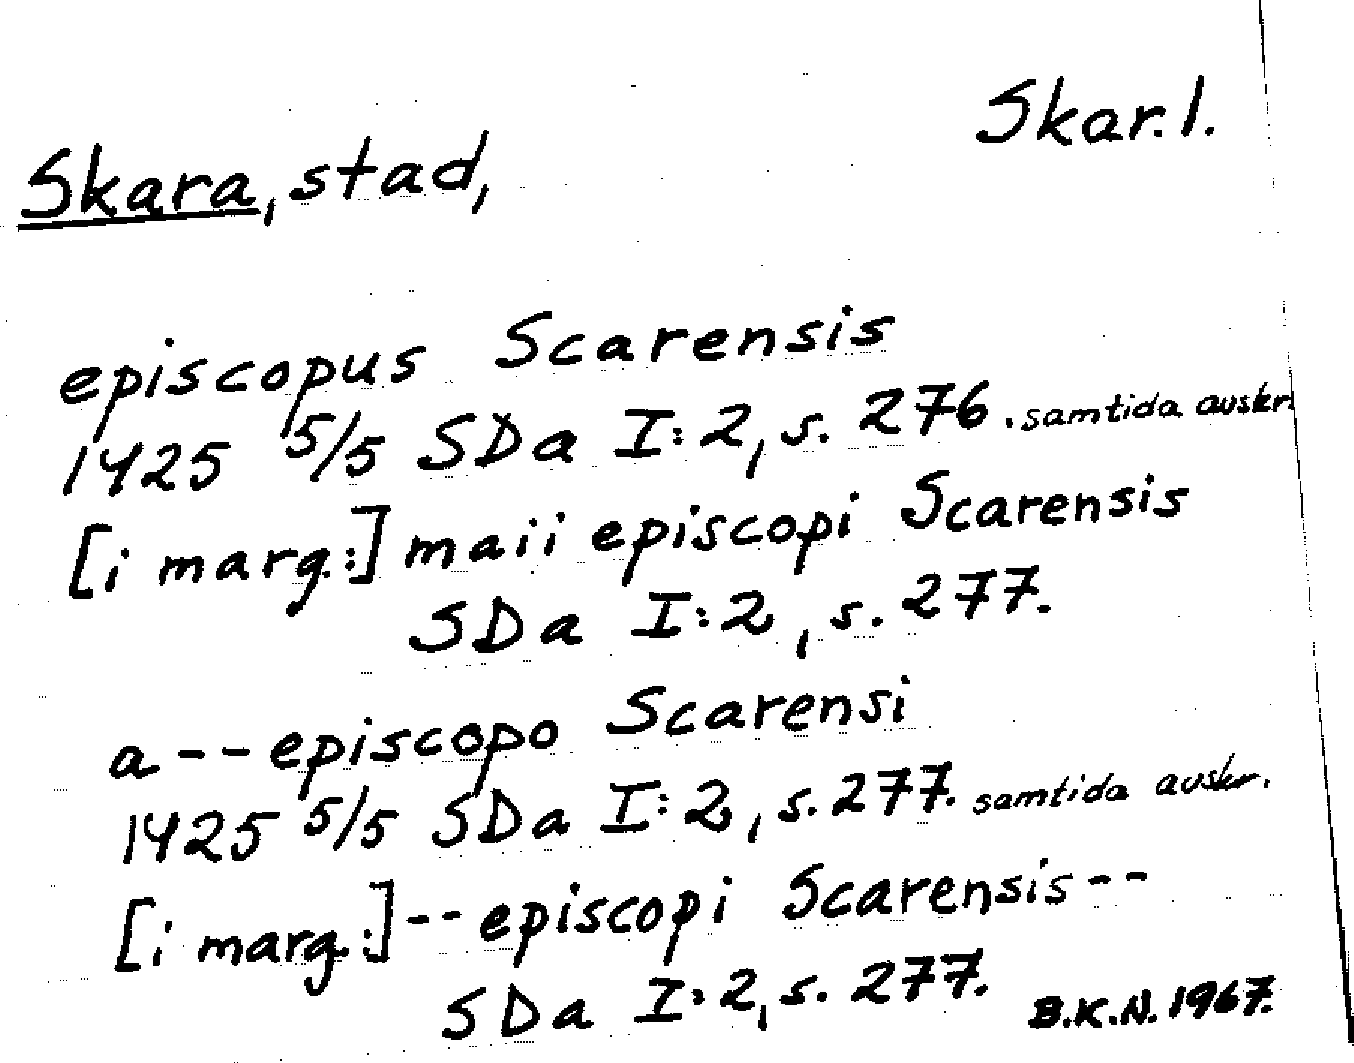 Skar.l.
Skara, stad,
episcopus Scarensis
1425 5/5 SDa I:2, s. 276. samtida avskr.
[i marg:] maii episcopi Scarensis
SDa I:2, s. 277.
a -- episcopo Scarensi
1425 5/5 SDa I:2, s. 277. samtida avskr.
[i marg:] -- episcopi Scarensis --
SDa I:2, s. 277.
B.K.N. 1967.